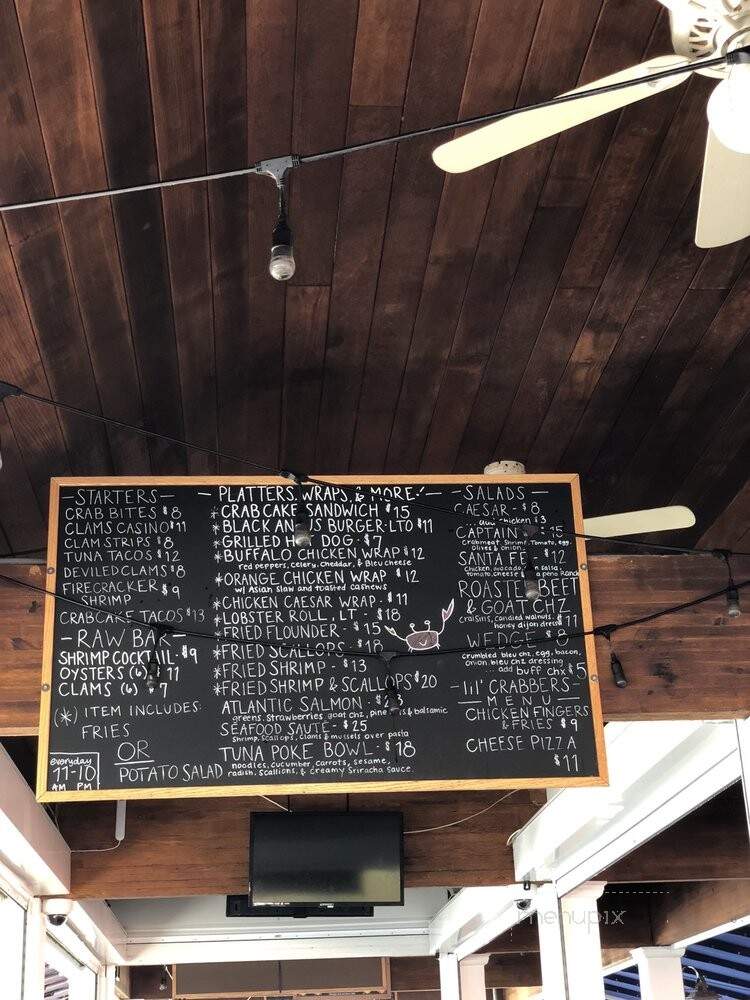 -STARTERS-
CRAB BITES $8
CLAMS CASINO $11
CLAM STRIPS $8
TUNA TACOS $12
DEVILED CLAMS $8
FIRECRACKER $9
SHRIMP
CRABCAKE TACOS $13
-RAW BAR-
SHRIMP COCKTAIL- $9
OYSTERS (6) 11
CLAMS (6) 7
(*) ITEM INCLUDES:
FRIES
OR
POTATO SALAD
everyday
11-10
AM PM
- PLATTERS, WRAPS, & MORE! -
*CRAB CAKE SANDWICH $15
*BLACK ANGUS BURGER-LTO $11
*GRILLED HOT DOG- $7
*BUFFALO CHICKEN WRAP $12
red peppers, celery, cheddar, & Bleu cheese
*ORANGE CHICKEN WRAP $12
w/ Asian slaw and toasted cashews
*CHICKEN CAESAR WRAP- $11
*LOBSTER ROLL, LT - $18
*FRIED FLOUNDER - $15
*FRIED SCALLOPS - $18
*FRIED SHRIMP - $13
*FRIED SHRIMP & SCALLOPS $20
ATLANTIC SALMON-
greens, strawberries, goat chz, & balsamic
SEAFOOD SAUTE- $25
Shrimp, scallops, clams & mussels over pasta
TUNA POKE BOWL- $18
noodles, cucumber, carrots, sesame,
radish, scallions, & creamy Sriracha sauce
-SALADS-
CAESAR - $8
add chicken $3
CAPTAIN 15
crabmeat, Shrimp, Tomato, egg,
olives & onion
SANTA FE - $12
chicken, avocado, salsa
tomato, cheese Ranch
ROASTED BEET
& GOAT CHZ
craisins, candied walnuts,
honey dijon dress $11
WEDGE $8
crumbled bleu chz, egg, bacon,
onion, bleu chz dressing
... add buff chx $5
-lil' CRABBERS-
- MENU -
CHICKEN FINGERS
& FRIES $9
CHEESE PIZZA
$11
menupix